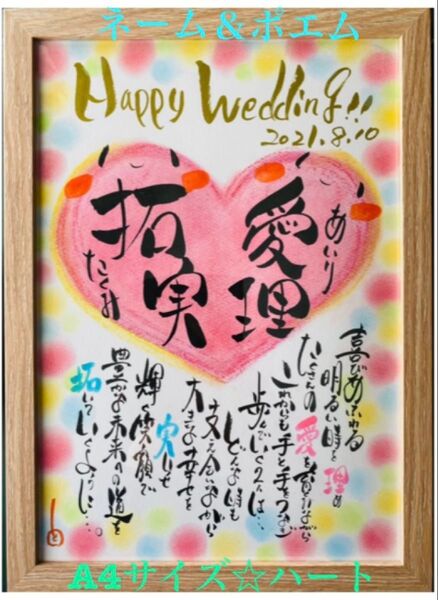 ネーム＆ポエム
Happy Wedding!!
2021.8.10
愛理
あいり
拓実
たくみ
喜びあふれる
明るい時を理め
たくさんの愛を ながら
これからも手と手をつなぎ
歩んでいく2人は…
どんな時も
支え合いながら
大きな幸せを
実らせ
輝く笑顔で
豊かな未来への道を
拓いていくように…。
A4サイズ☆ハート